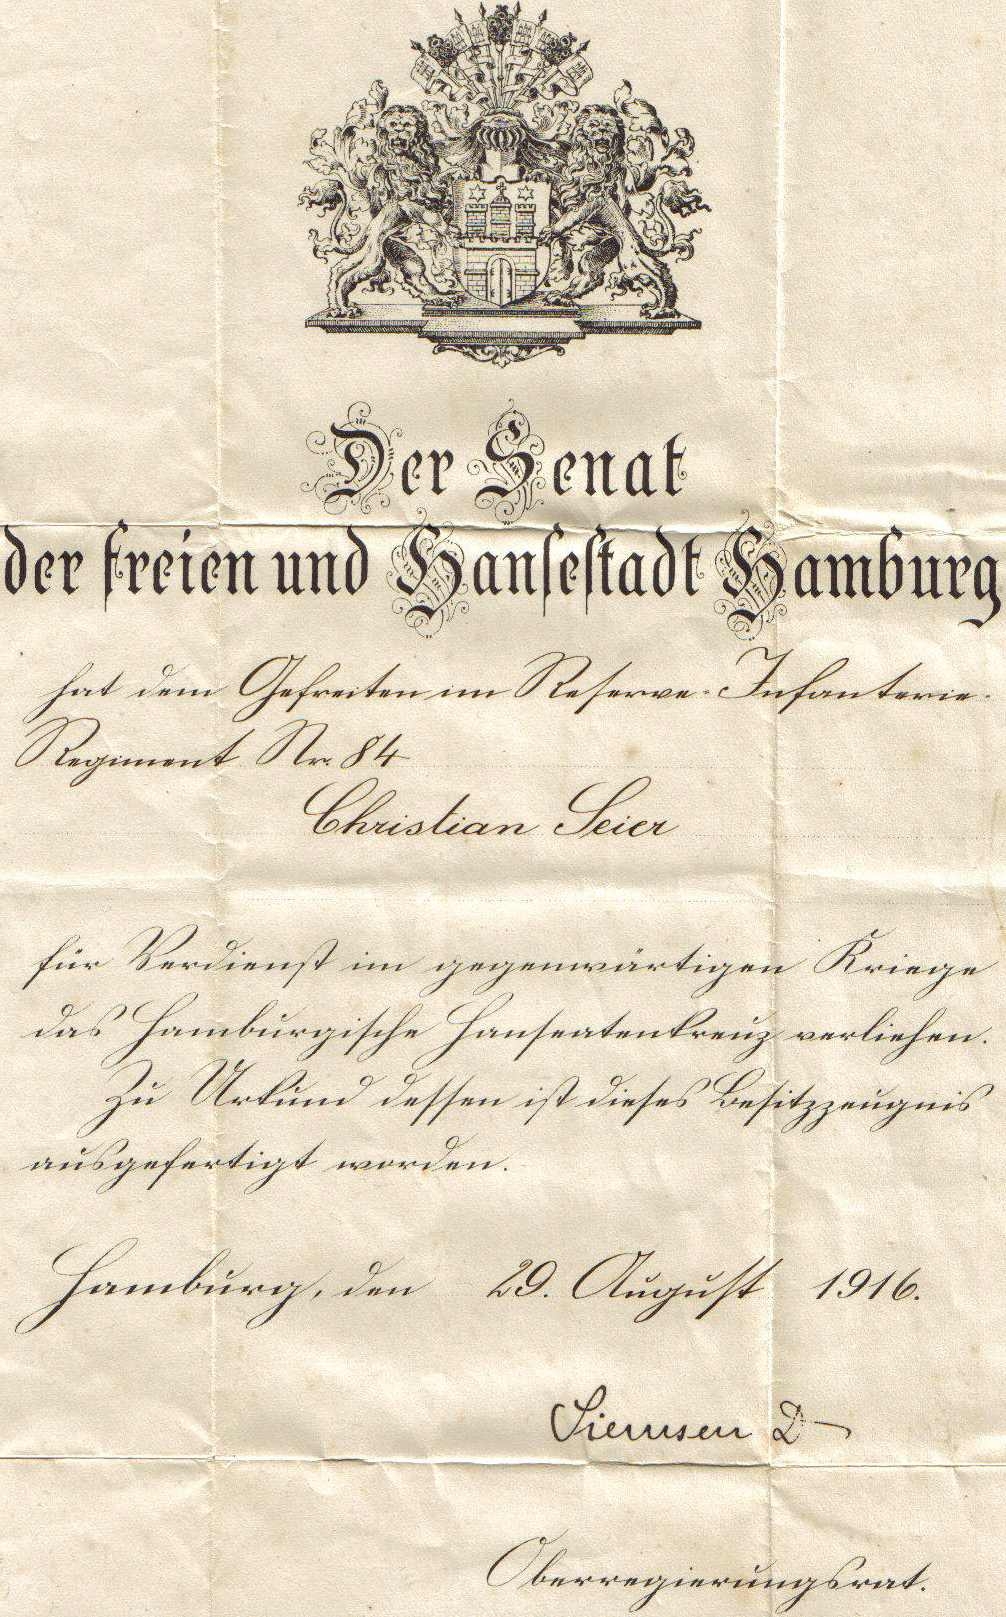 Der Senat
der freien und Hansestadt Hamburg
hat dem Gefreiten im Reserve-Infanterie-
Regiment Nr. 84
Christian Seier
für Verdienst im gegenwärtigen Kriege
das Hamburgische Hanseatenkreuz verliehen.
Zu Urkund dessen ist dieses Besitzzeugnis
ausgefertigt worden.
Hamburg, den 29. August 1916.
Siemsen
Oberregierungsrat.